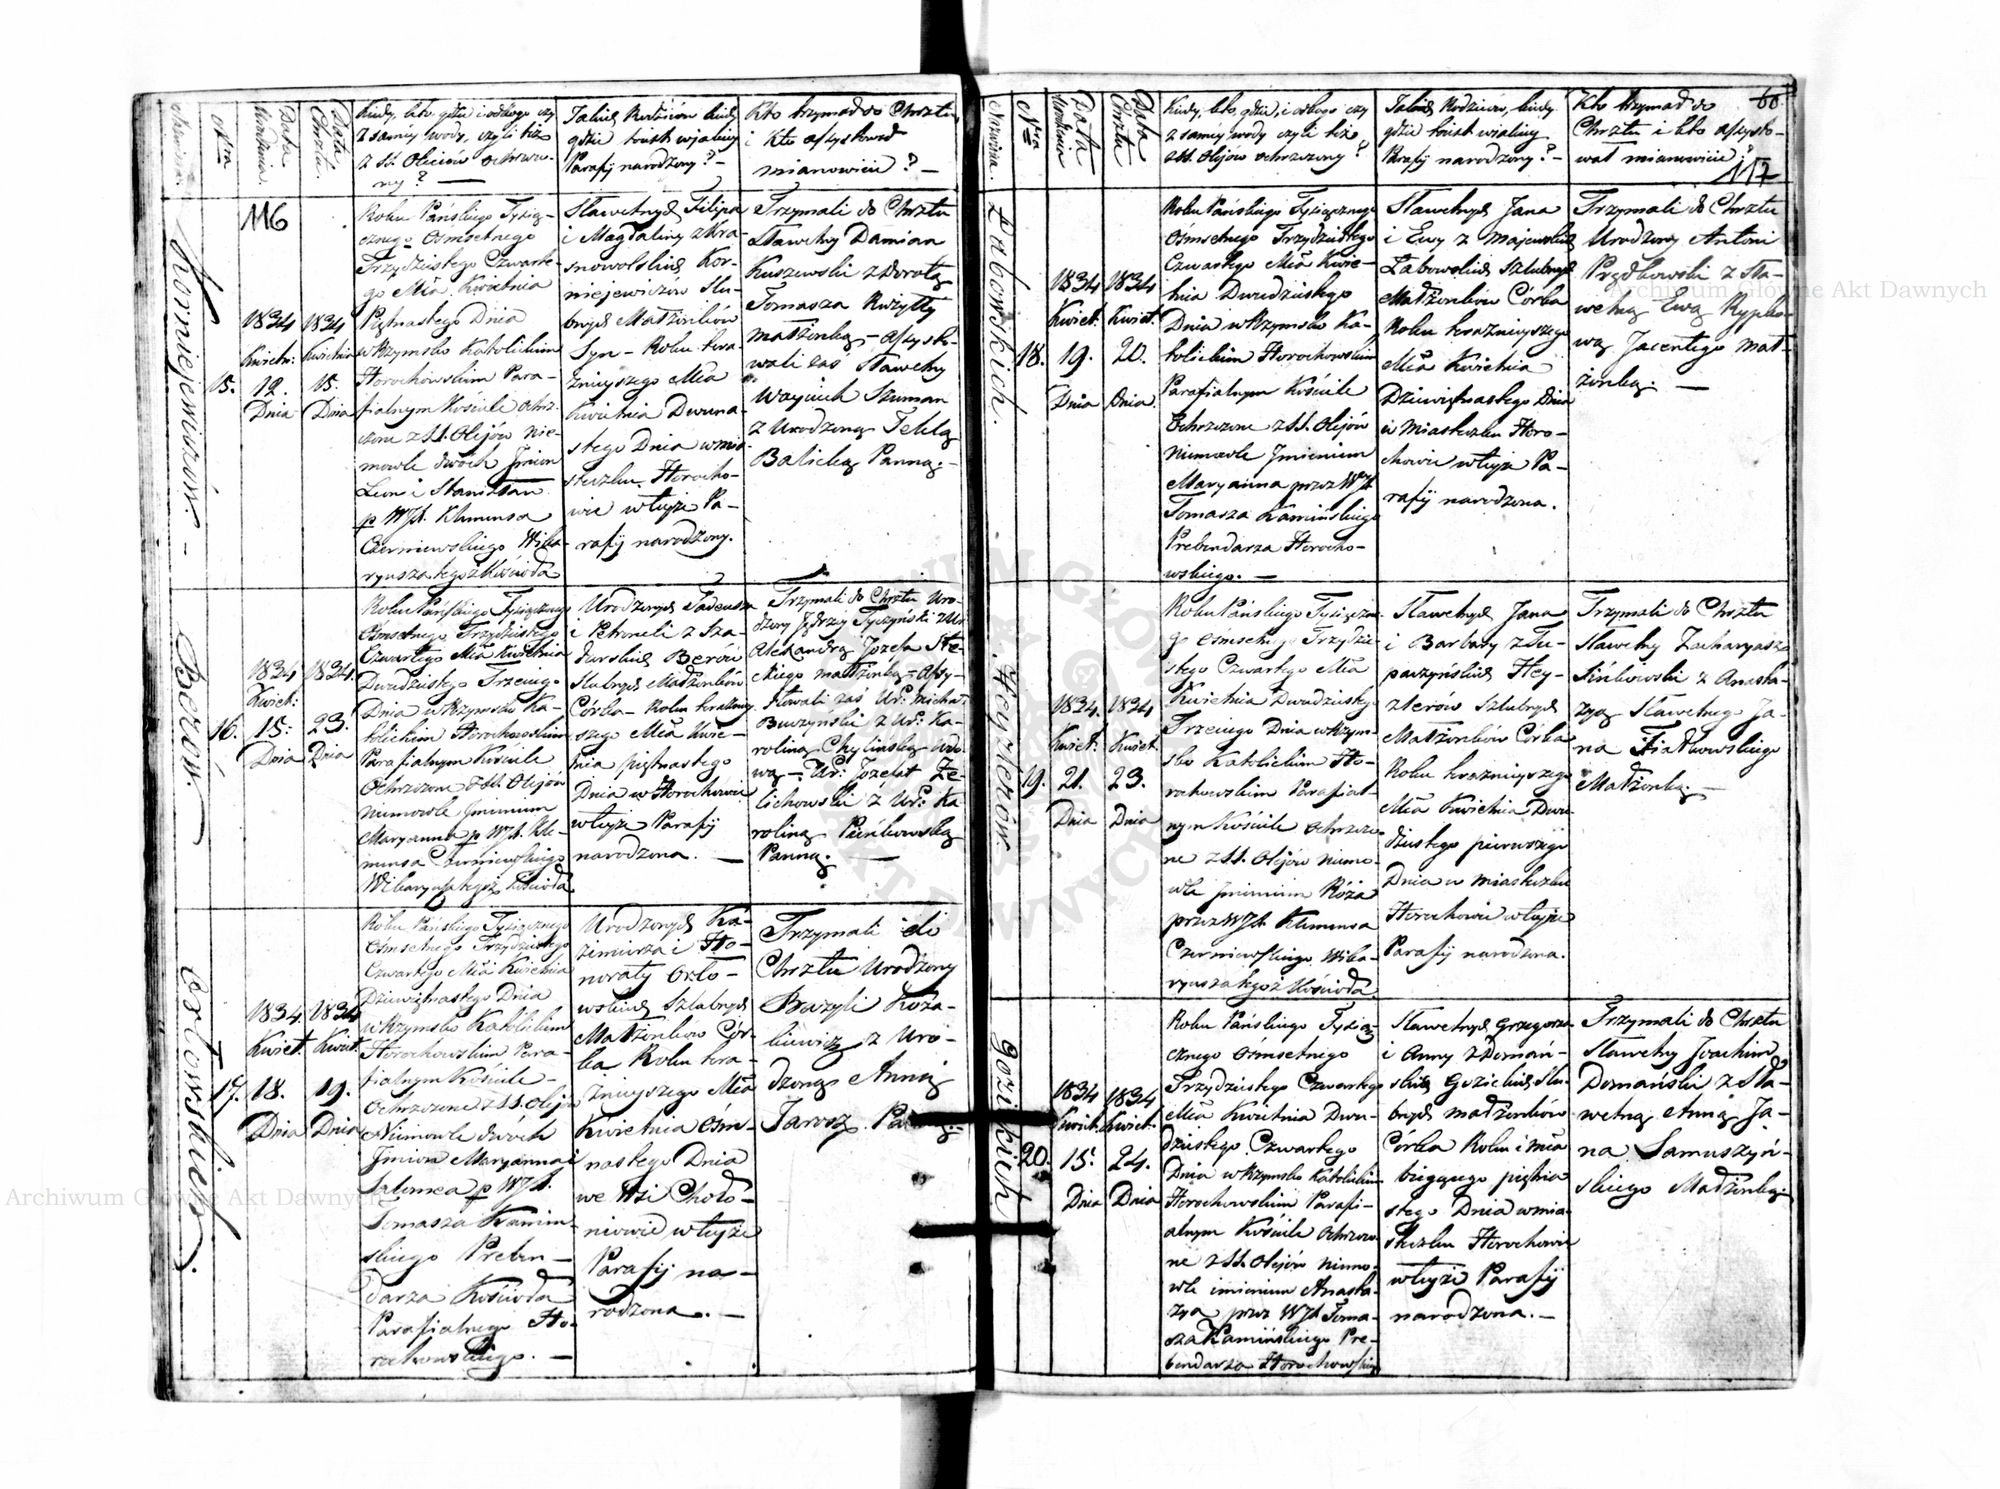 Nazwiska.
Nra
Data Urodzenia.
Data Chrztu.
Kiedy, kto, gdzie i odkogo czy
z samey wody, czyli też
z SS. Olejów ochrzczo-
ny? —
Jakich Rodziców kiedy
gdzie i w iakiey
Parafij narodzony? —
Kto trzymał do Chrztu,
i Kto assystował
mianowicie? —
116
Korniejewiczów. —
15.
1834
Kwiet:
12.
Dnia
1834
Kwietnia
15.
Dnia
Roku Pańskiego Tysią-
cznego Osmsetnego
Trzydziestego Czwarte-
go Mca Kwietnia
Piętnastego Dnia
w Rzymsko Katolickim
Horochowskim Para-
fialnym Kościele ochrz-
czone z SS. Olejów nie-
mowle dwóch Jmion
Leon i Stanisław
p WJX. Klemensa
Czerniewskiego Wika-
ryusza tegoż Kościoła
Sławetnych Filipa
i Magdaliny z Kra-
snowolskich Kor-
niejewiczów Slu-
bnych Małżonków
Syn – Roku tera-
źnieyszego Mca
Kwietnia Dwuna-
stego Dnia w mia-
steczku Horocho-
wie w teyże Pa-
rafij narodzony.
Trzymali do Chrztu
Sławetny Damian
Kuszewski z Dorotą
Tomasza Ruzytty
małżonką – assysto-
wali zaś Sławetny
Woyciech Szuman
z Urodzoną Teklą
Balicką Panną. –
Berów.
16.
1834
Kwiet:
15.
Dnia
1834.
23.
Dnia
Roku Pańskiego Tysiącznego
Osmsetnego Trzydziestego
Czwartego Mca Kwietnia
Dwudziestego Trzeciego
Dnia w Rzymsko Ka-
tolickim Horochowskim
Parafialnym Kościele
Ochrzczone z SS. Olejów
niemowle Jmieniem
Maryanna p WJX. Kle-
mensa Czerniewskiego
Wikaryusza tegoż Kościoła
Urodzonych Tadeusza
i Petroneli z Sza-
farskich Berów
Slubnych Małżonków
Córka – Roku teraźniey-
szego Mca Kwie-
tnia piętnastego
Dnia w Horochowie
w teyże Parafij
narodzona. —
Trzymali do Chrztu Uro-
dzony Jędrzey Tyczyński z Ur:
Alexandrą Jozefa Ste-
ckiego małżonką – Assy-
stowali zaś Ur: Michał
Buczyński z Ur: Ka-
roliną Chylińską wdo-
wą – Ur: Jozefat Ze-
lichowski z Ur: Ka-
roliną Pieńkowską
Panną. —
Orłowskich.
17.
1834.
Kwiet.
18.
Dnia
1834
Kwiet.
19.
Dnia
Roku Pańskiego Tysiącznego
Osmsetnego Trzydziestego
Czwartego Mca Kwietnia
Dziewiętnastego Dnia
w Rzymsko Katolickim
Horochowskim Para-
fialnym Kościele –
Ochrzczone z SS. Olejów
Niemowle dwóch
Jmion Maryanna i
Salomea p WJX.
Tomasza Kamin-
skiego Preben-
darza Kościoła
Parafialnego Ho-
rochowskiego. —
Urodzonych Ka-
zimierza i Ho-
noraty Orło-
wskich Szlubnych
Małżonków Cór-
ka Roku tera-
źnieyszego Mca
Kwietnia Osm-
nastego Dnia
we Wsi Choło-
niowie w teyże
Parafij na-
rodzona. —
Trzymali do
Chrztu Urodzony
Bazyli Koza-
kiewicz z Uro-
dzoną Anną
Jarosz Panną.
Nazwiska.
Nra
Data Urodzenia
Data Chrztu
Kiedy, kto, gdzie, i odkogo czy
z samey wody czyli też
z SS. Olejów ochrzczony?
Jakich Rodziców, kiedy
gdzie i w iakiey
Parafij narodzony? –
Kto trzymał do
Chrztu i kto assysto-
wał mianowicie?
60.
117
Łabowskich.
18.
1834
Kwiet.
19.
Dnia
1834
Kwiet.
20.
Dnia.
Roku Pańskiego Tysiącznego
Osmsetnego Trzydziestego
Czwartego Mca Kwie-
tnia Dwudziestego
Dnia w Rzymsko Ka-
tolickim Horochowskim
Parafialnym Kościele
Ochrzczone z SS. Olejów
niemowle Jmieniem
Maryanna przez WJX.
Tomasza Kamińskiego
Prebendarza Horocho-
wskiego. —
Sławetnych Jana
i Ewy z Majewskich
Łabowskich Szlubnych
Małżonków Córka
Roku teraźnieyszego
Mca Kwietnia
Dziewiętnastego Dnia
w Miasteczku Horo-
chowie w teyże Pa-
rafij narodzona.
Trzymali do Chrztu
Urodzony Antoni
Prądkowski z Sła-
wetną Ewą Rypko-
wą Jacentego mał-
żonką. —
Heyzterów
19.
1834.
Kwiet:
21.
Dnia
1834
Kwiet.
23.
Dnia
Roku Pańskiego Tysiączne-
go Osmsetnego Trzydzie-
stego Czwartego Mca
Kwietnia Dwudziestego
Trzeciego Dnia w Rzym-
sko Katolickim Ho-
rochowskim Parafial-
nym Kościele Ochrzczo-
ne z SS. Olejów niemo-
wle Jmieniem Róża
przez WJX. Klemensa
Czerniewskiego Wika-
ryusza tegoż Kościoła
Sławetnych Jana
i Barbary z Tu-
paczyńskich Hey-
zterów Szlubnych
Małżonków Córka
Roku teraźnieyszego
Mca Kwietnia Dwu-
dziestego pierwszego
Dnia w miasteczku
Horochowie w teyże
Parafij narodzona.
Trzymali do Chrztu
Sławetny Zacharyasz
Sińkowski z Anasta-
zyą Sławetnego Ja-
na Fiałkowskiego
Małżonką. —
Gozickich
20.
1834
Kwiet.
15.
Dnia
1834
Kwiet.
24.
Dnia
Roku Pańskiego Tysią-
cznego Osmsetnego
Trzydziestego Czwartego
Mca Kwietnia Dwu-
dziestego Czwartego
Dnia w Rzymsko Katolickim
Horochowskim Parafi-
alnym Kościele Ochrzczo-
ne z SS. Olejów niemo-
wle imieniem Anasta-
zya przez WJX Toma-
sza Kamińskiego Pre-
bendarza Horochowskiego
Sławetnych Grzegorza
i Anny z Domań-
skich Gozickich Slu-
bnych małżonków
Córka Roku i Mca
bieżącego piętna-
stego Dnia w mia-
steczku Horochowie
w teyże Parafij
narodzona. —
Trzymali do Chrztu
Sławetny Joachim
Domański z Sła-
wetną Anną Ja-
na Samuszyń-
skiego Małżonką.
Archiwum Główne Akt Dawnych
Archiwum Główne Akt Dawnych
ARCHIWUM GŁÓWNE AKT DAWNYCH